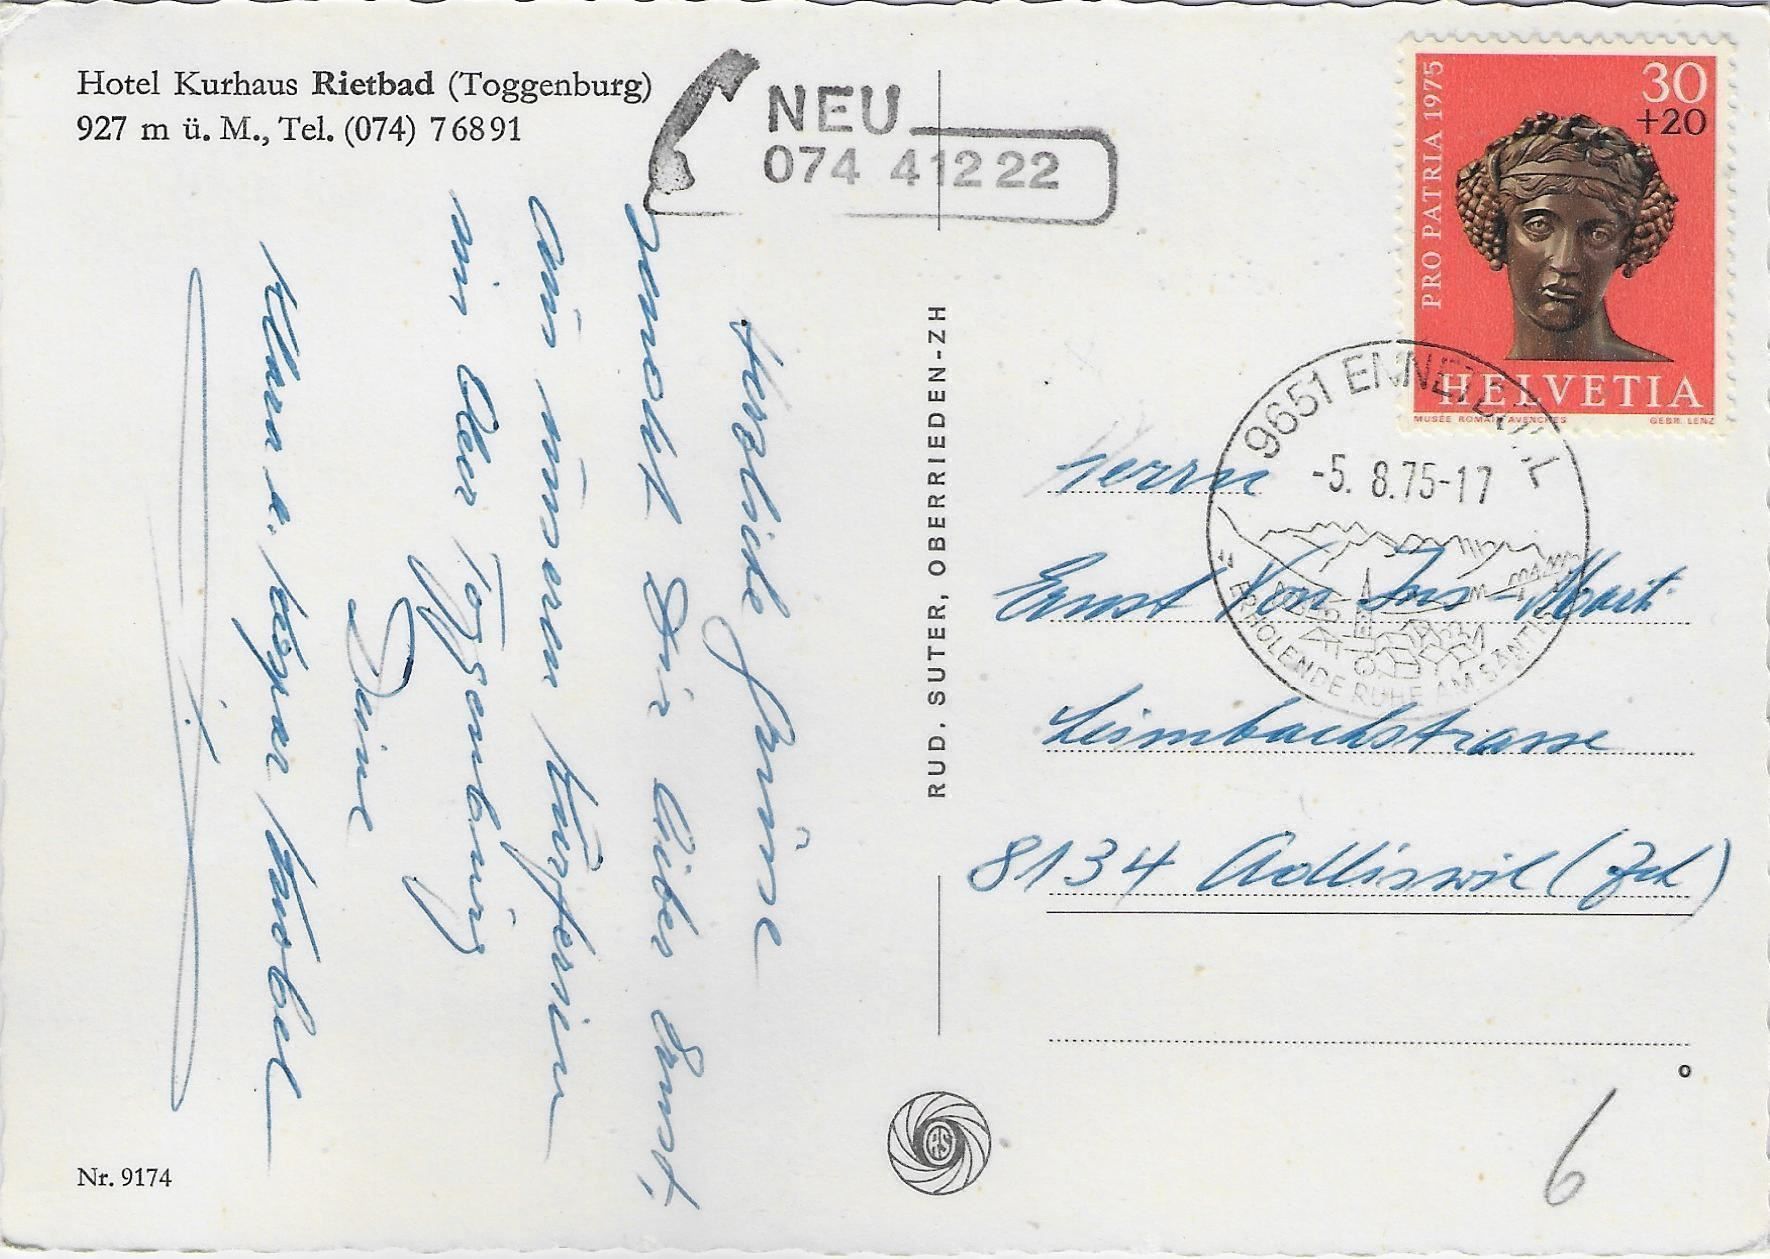 Hotel Kurhaus Rietbad (Toggenburg)
927 m ü. M., Tel. (074) 7 68 91
NEU
074 4 12 22
Herzliche Grüsse
sendet Dir lieber Ernst,
aus unseren Kurferien
im Ober Toggenburg
Deine
Klara u. Kaspar Knobel
Nr. 9174
RUD. SUTER, OBERRIEDEN-ZH
RS
PRO PATRIA 1975
30
+20
HELVETIA
MUSÉE ROMAIN AVENCHES
GEBR. LENZ
9651 ENNETBÜHL
-5. 8.75-17
ERHOLENDE RUHE AM SÄNTIS
Herrn
Ernst Von Ins-Marti
Leimbachstrasse
8134 Adliswil (Zch)
o
6